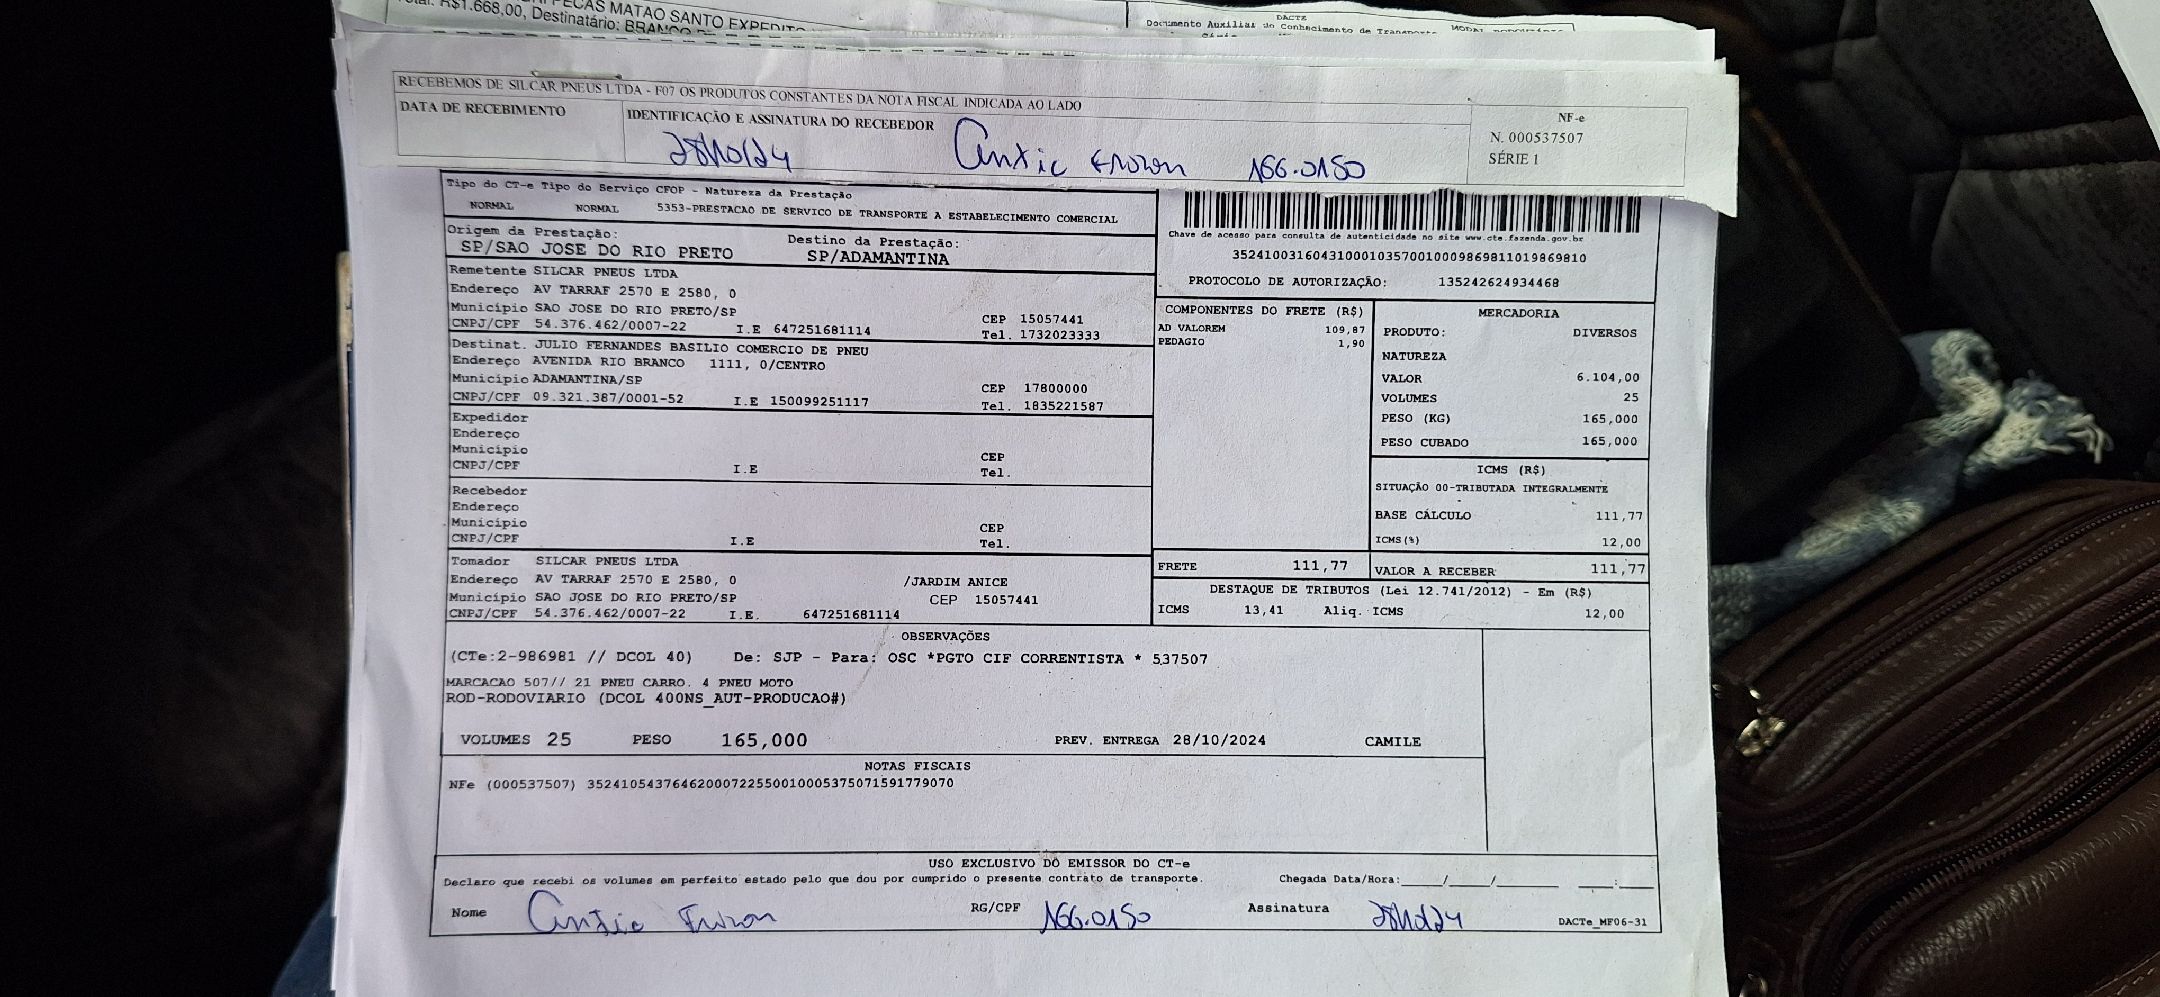 R$1.668,00, Destinatário: BRANCO
PECAS MATAO SANTO EXPEDITO
DACTE
Documento Auxiliar do Conhecimento de Transporte
RECEBEMOS DE SILCAR PNEUS LTDA - F07 OS PRODUTOS CONSTANTES DA NOTA FISCAL INDICADA AO LADO
DATA DE RECEBIMENTO
IDENTIFICAÇÃO E ASSINATURA DO RECEBEDOR
28/10/24 166.0150
NF-e
N. 000537507
SÉRIE 1
Tipo do CT-e Tipo do Serviço CFOP - Natureza da Prestação
NORMAL NORMAL 5353-PRESTACAO DE SERVICO DE TRANSPORTE A ESTABELECIMENTO COMERCIAL
Origem da Prestação: Destino da Prestação:
SP/SAO JOSE DO RIO PRETO SP/ADAMANTINA
Chave de acesso para consulta de autenticidade no site www.cte.fazenda.gov.br
35241003160431000103570010009869811019869810
PROTOCOLO DE AUTORIZAÇÃO: 135242624934468
Remetente SILCAR PNEUS LTDA
Endereço AV TARRAF 2570 E 2580, 0
Município SAO JOSE DO RIO PRETO/SP CEP 15057441
CNPJ/CPF 54.376.462/0007-22 I.E 647251681114 Tel. 1732023333
Destinat. JULIO FERNANDES BASILIO COMERCIO DE PNEU
Endereço AVENIDA RIO BRANCO 1111, 0/CENTRO
Município ADAMANTINA/SP CEP 17800000
CNPJ/CPF 09.321.387/0001-52 I.E 150099251117 Tel. 1835221587
Expedidor
Endereço
Município CEP
CNPJ/CPF I.E Tel.
Recebedor
Endereço
Município CEP
CNPJ/CPF I.E Tel.
Tomador SILCAR PNEUS LTDA
Endereço AV TARRAF 2570 E 2580, 0 /JARDIM ANICE
Município SAO JOSE DO RIO PRETO/SP CEP 15057441
CNPJ/CPF 54.376.462/0007-22 I.E. 647251681114
COMPONENTES DO FRETE (R$)
AD VALOREM 109,87
PEDAGIO 1,90
MERCADORIA
PRODUTO: DIVERSOS
NATUREZA
VALOR 6.104,00
VOLUMES 25
PESO (KG) 165,000
PESO CUBADO 165,000
ICMS (R$)
SITUAÇÃO 00-TRIBUTADA INTEGRALMENTE
BASE CÁLCULO 111,77
ICMS(%) 12,00
FRETE 111,77 VALOR A RECEBER 111,77
DESTAQUE DE TRIBUTOS (Lei 12.741/2012) - Em (R$)
ICMS 13,41 Aliq. ICMS 12,00
OBSERVAÇÕES
(CTe:2-986981 // DCOL 40) De: SJP - Para: OSC *PGTO CIF CORRENTISTA * 537507
MARCACAO 507// 21 PNEU CARRO. 4 PNEU MOTO
ROD-RODOVIARIO (DCOL 400NS_AUT-PRODUCAO#)
VOLUMES 25 PESO 165,000 PREV. ENTREGA 28/10/2024 CAMILE
NOTAS FISCAIS
NFe (000537507) 35241054376462000722550010005375071591779070
USO EXCLUSIVO DO EMISSOR DO CT-e
Declaro que recebi os volumes em perfeito estado pelo que dou por cumprido o presente contrato de transporte. Chegada Data/Hora:____/____/______ ___:___
Nome RG/CPF 166.0150 Assinatura 28/10/24 DACTe_MF06-31